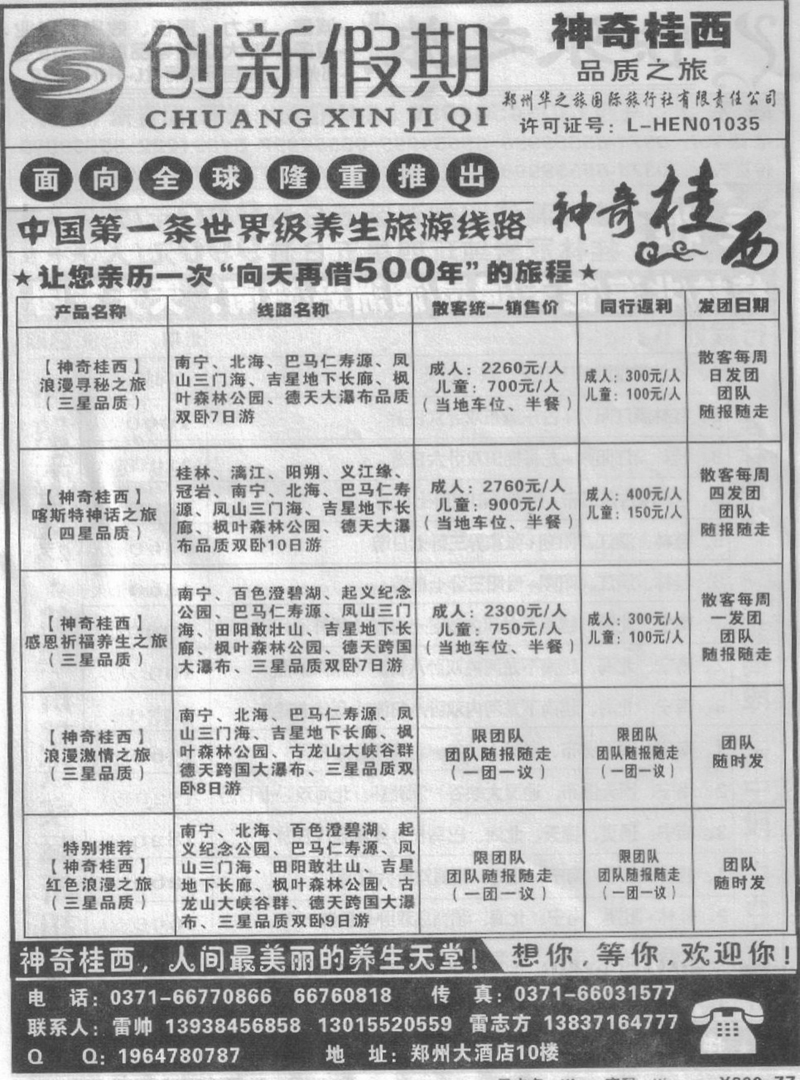 创新假期
CHUANG XIN JI QI
神奇桂西
品质之旅
郑州华之旅国际旅行社有限责任公司
许可证号：L-HEN01035
面向全球 隆重推出
中国第一条世界级养生旅游线路
神奇桂西
★让您亲历一次“向天再借500年”的旅程★
产品名称 线路名称 散客统一销售价 同行返利 发团日期
【神奇桂西】
浪漫寻秘之旅
（三星品质）
南宁、北海、巴马仁寿源、凤
山三门海、吉星地下长廊、枫
叶森林公园、德天大瀑布品质
双卧7日游
成人：2260元/人
儿童：700元/人
（当地车位、半餐）
成人：300元/人
儿童：100元/人
散客每周
日发团
团队
随报随走
【神奇桂西】
喀斯特神话之旅
（四星品质）
桂林、漓江、阳朔、义江缘、
冠岩、南宁、北海、巴马仁寿
源、凤山三门海、吉星地下长
廊、枫叶森林公园、德天大瀑
布品质双卧10日游
成人：2760元/人
儿童：900元/人
（当地车位、半餐）
成人：400元/人
儿童：150元/人
散客每周
四发团
团队
随报随走
【神奇桂西】
感恩祈福养生之旅
（三星品质）
南宁、百色澄碧湖、起义纪念
公园、巴马仁寿源、凤山三门
海、田阳敢壮山、吉星地下长
廊、枫叶森林公园、德天跨国
大瀑布、三星品质双卧7日游
成人：2300元/人
儿童：750元/人
（当地车位、半餐）
成人：300元/人
儿童：100元/人
散客每周
一发团
团队
随报随走
【神奇桂西】
浪漫激情之旅
（三星品质）
南宁、北海、巴马仁寿源、凤
山三门海、吉星地下长廊、枫
叶森林公园、古龙山大峡谷群
德天跨国大瀑布、三星品质双
卧8日游
限团队
团队随报随走
（一团一议）
限团队
团队随报随走
（一团一议）
团队
随时发
特别推荐
【神奇桂西】
红色浪漫之旅
（三星品质）
南宁、北海、百色澄碧湖、起
义纪念公园、巴马仁寿源、凤
山三门海、田阳敢壮山、吉星
地下长廊、枫叶森林公园、古
龙山大峡谷群、德天跨国大瀑
布、三星品质双卧9日游
限团队
团队随报随走
（一团一议）
限团队
团队随报随走
（一团一议）
团队
随时发
神奇桂西，人间最美丽的养生天堂！ 想你，等你，欢迎你！
电 话：0371-66770866 66760818 传 真：0371-66031577
联系人：雷帅 13938456858 13015520559 雷志方 13837164777
Q Q：1964780787 地 址：郑州大酒店10楼